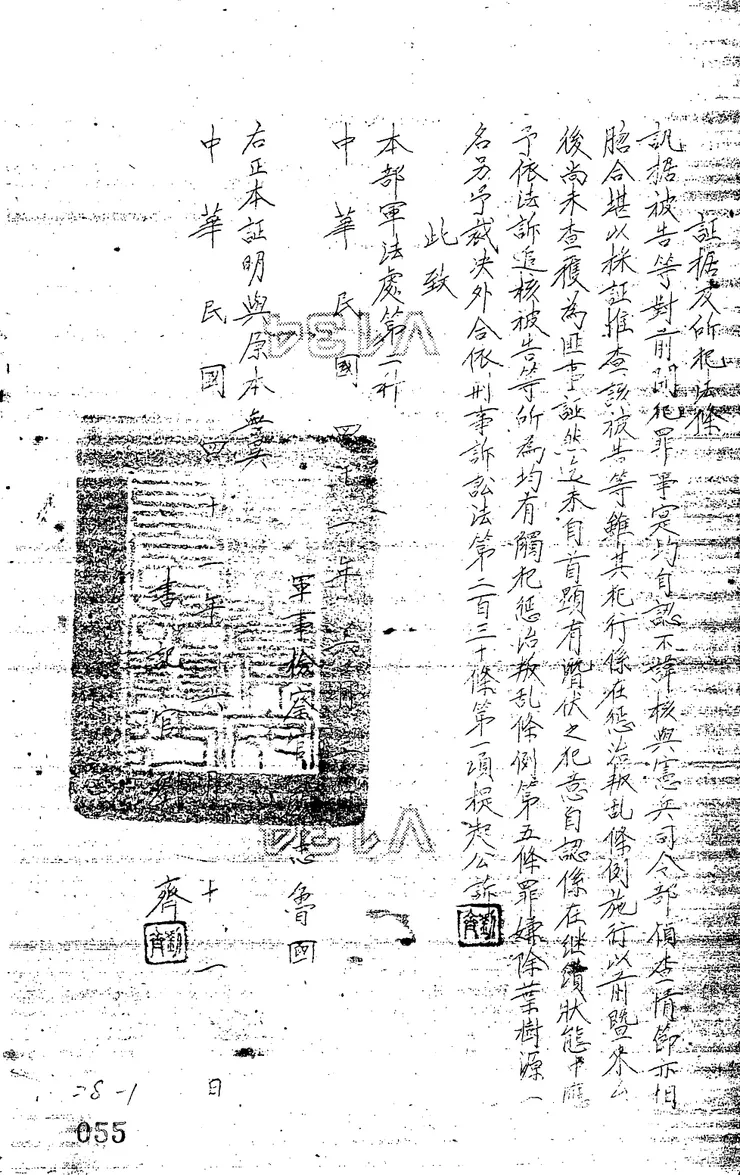 証据及所犯法條
訊据被告等對前開犯罪事实均自認不諱核與憲兵司令部偵查情節亦相
脗合堪以採証惟查該被告等雖其犯行係在惩治叛乱條例施行以前暨來台
後尚未查獲為匪事証然迄未自首顯有潛伏之犯意自認係在継續狀態中應
予依法訴追核被告等所為均有觸犯惩治叛乱條例第五條罪嫌除葉樹源一
名另予裁决外合依刑事訴訟法第二百三十條第一項提起公訴
此致
本部軍法處第二科
中華民國四十一年 月
軍事檢察官
右正本証明與原本無異
中華民國四十一年 月十一日
書記官劉齊
劉齊
劉齊
V134
V134
28-1
055